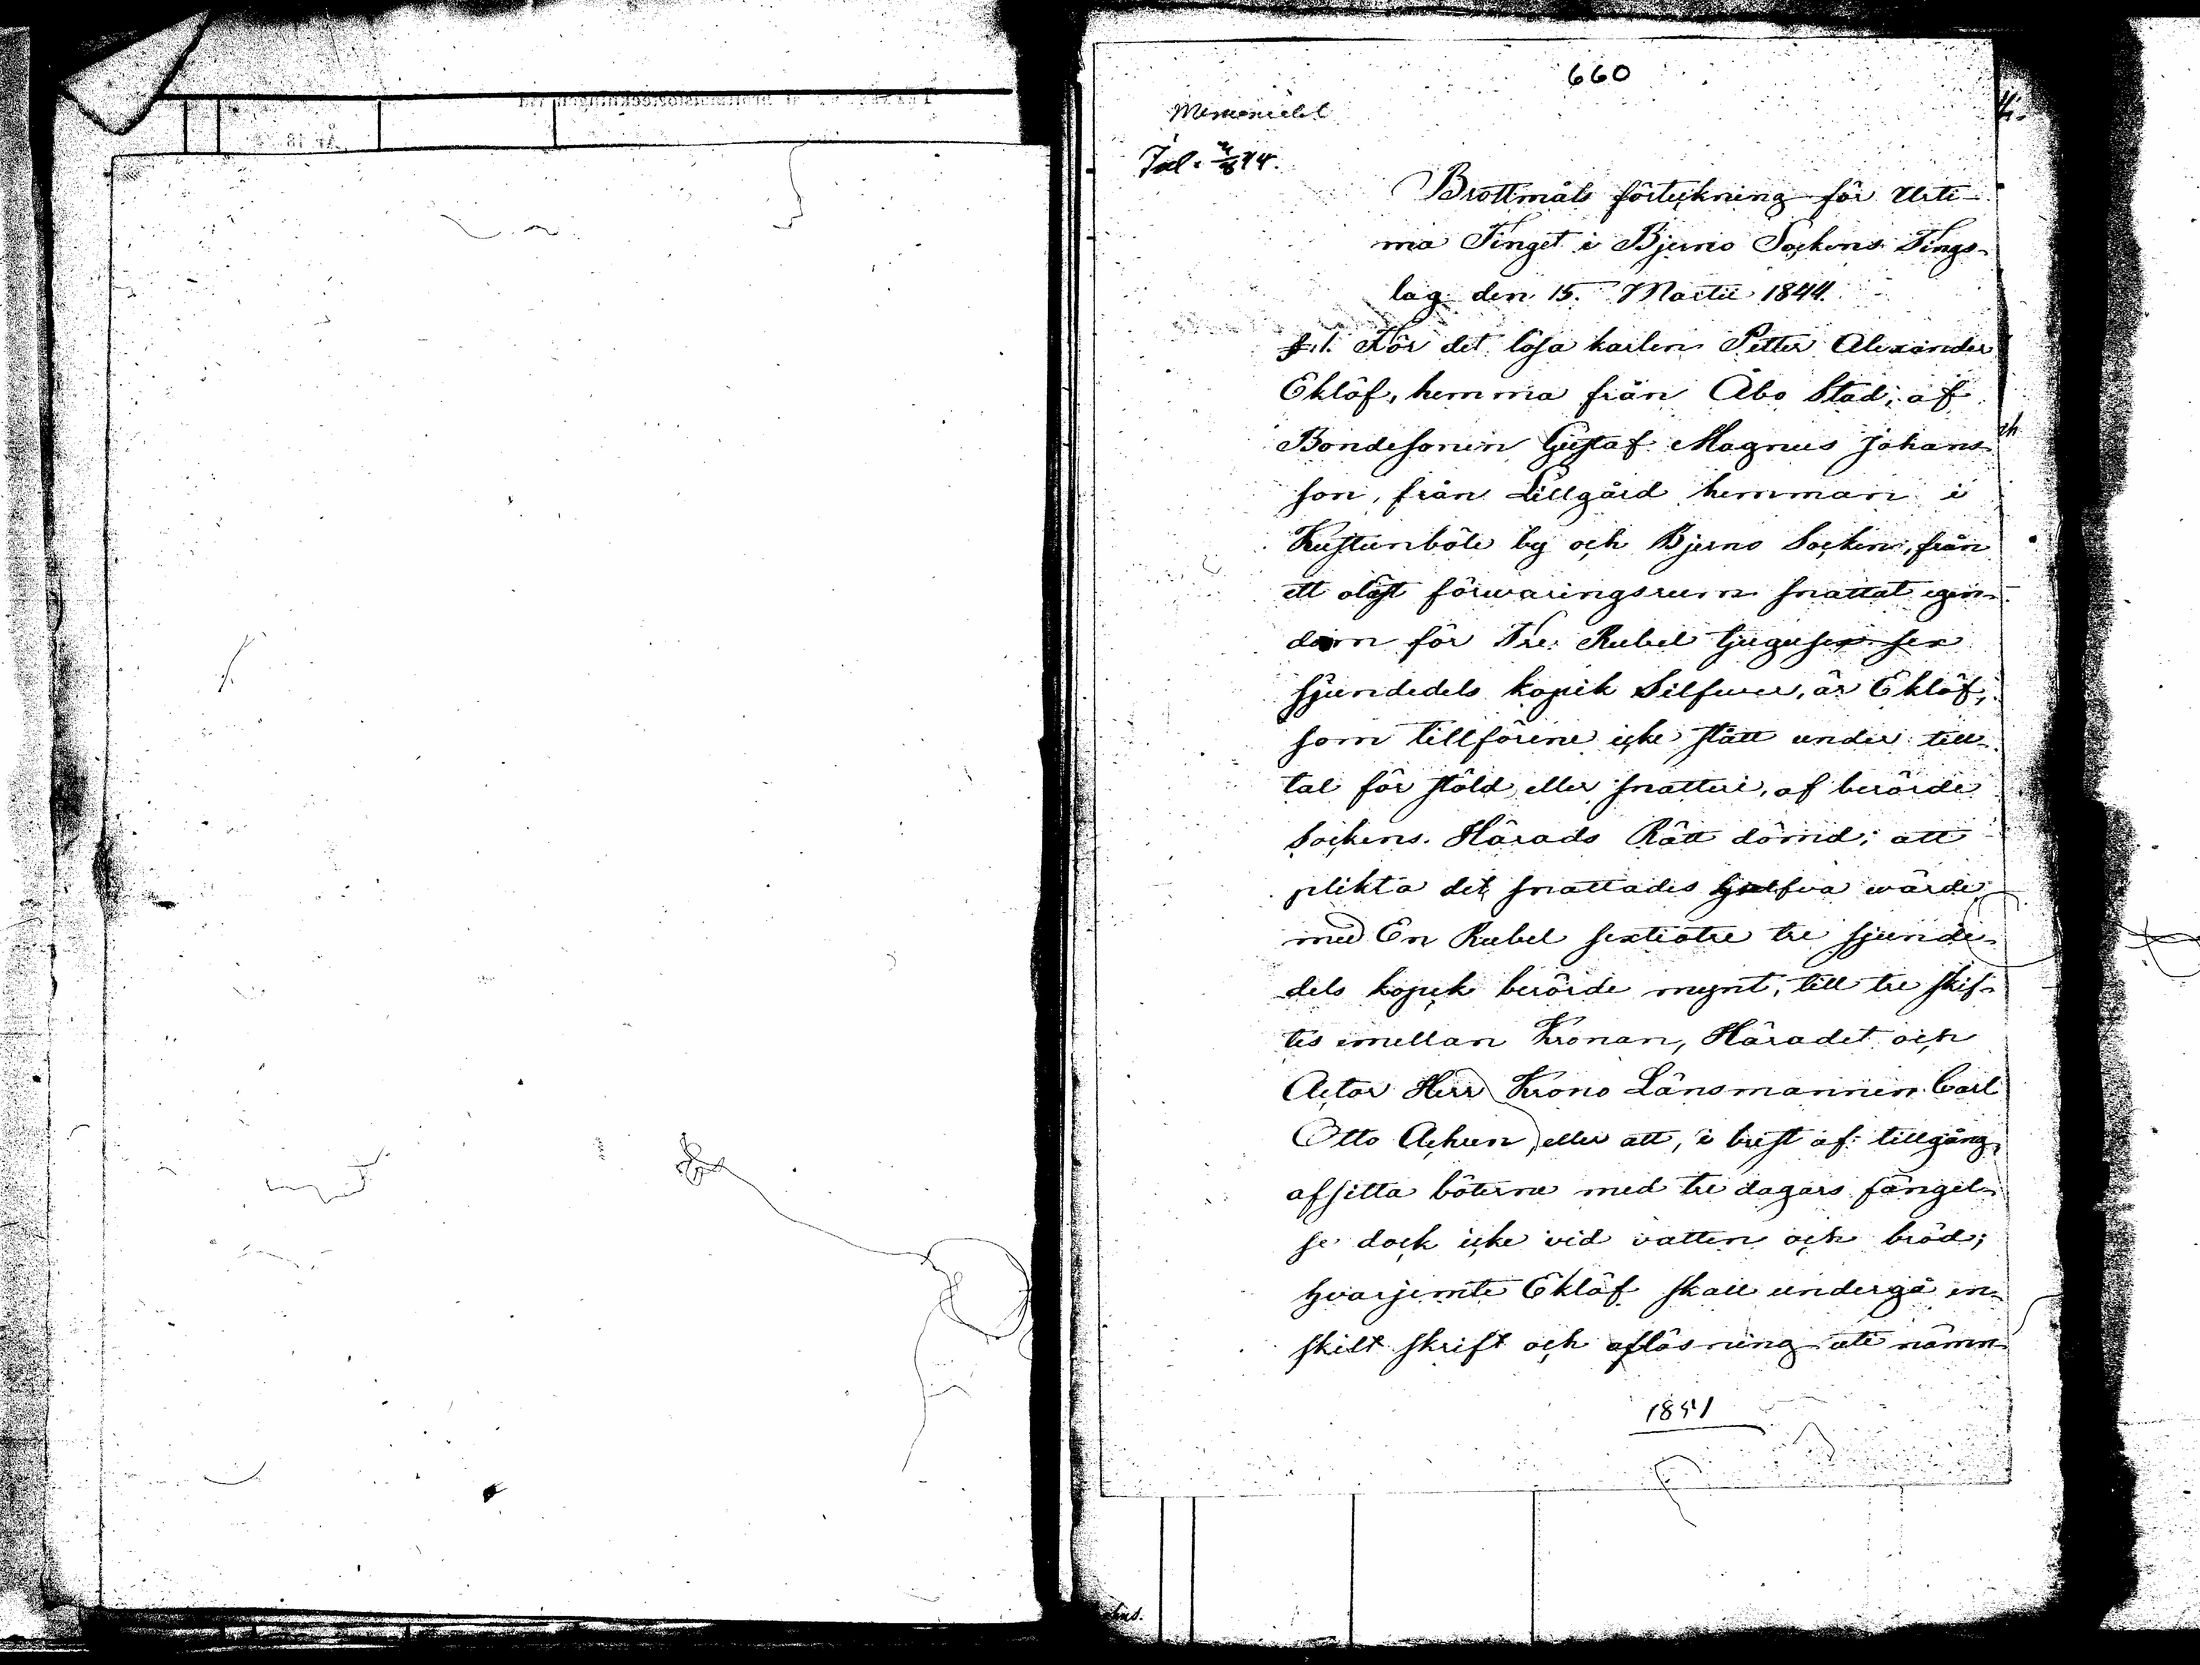 660
Memorialet
Inl. 2/8 44.
Brottmåls förteckning för Urti-
ma Tinget i Bjerno Sockens Tings-
lag den 15. Martii 1844.
§.1. För det lösa karlen Petter Alexander
Eklöf, hemma från Åbo Stad, af
Bondesonen Gustaf Magnus Johans-
son, från Lillgård hemman i
Kustunböle by och Bjerno Socken, från
ett oläst förvaringsrum snattat egen-
dom för Tre Rubel tjugusex sex
sjundedels kopek Silfwer, är Eklöf,
som tillförene icke stått under till-
tal för stöld eller snatteri, af berörde
Sockens Härads Rätt dömd; att
plikta det snattades halfva wärde
med En Rubel sextiotre tre sjunde-
dels kopek berörde mynt, till tre skif-
tes emellan Kronan, Häradet och
Actor Herr Krono Länsmannen Carl
Otto Achren, eller att, i brist af tillgång,
afsitta böterne med tre dagars fängel-
se dock icke vid vatten och bröd;
hvarjemte Eklöf skall undergå en-
skilt skrift och aflösning uti nämn-
1851